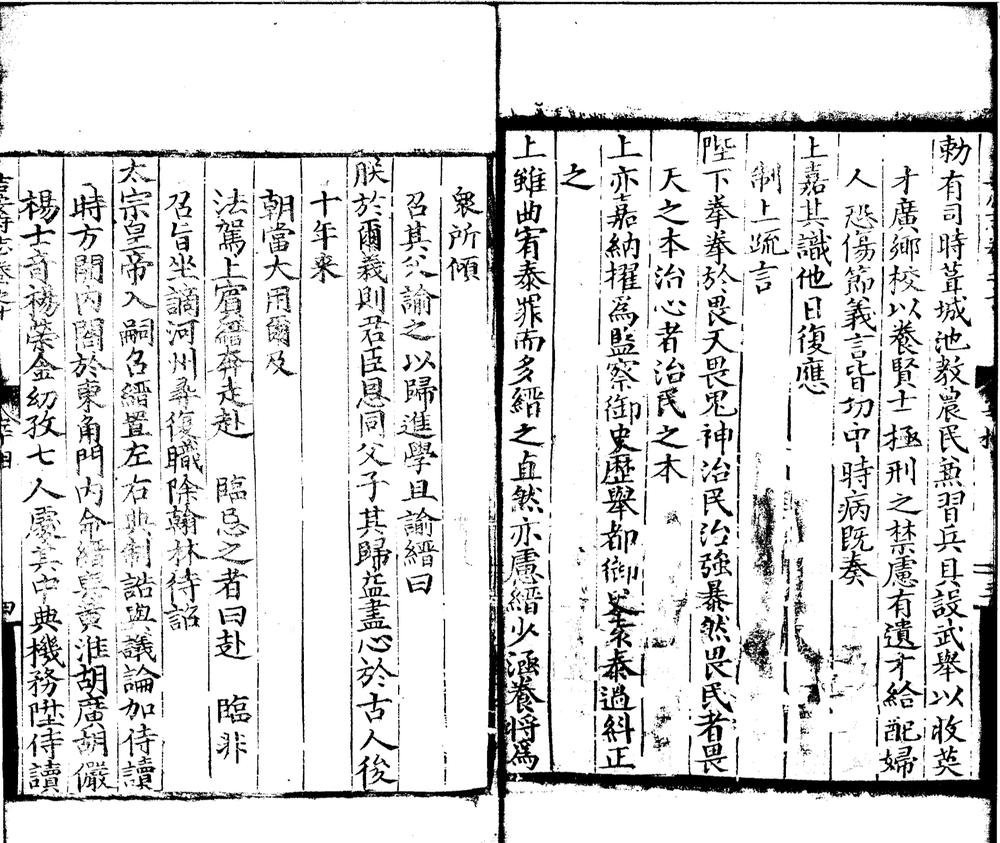 勅有司時葺城池教農民兼習兵具設武舉以收英
才廣鄉校以養賢士極刑之禁慮有遺才給配婦
人恐傷節義言皆切中時病既奏
上嘉其識他日復應
制上疏言
陛下拳拳於畏天畏鬼神治民治強暴然畏民者畏
天之本治心者治民之本
上亦嘉納擢爲監察御史歷舉都御史袁泰過糾正
之
上雖曲宥泰罪而多縉之直然亦慮縉少涵養將爲
衆所傾
召其父諭之以歸進學且諭縉曰
朕於爾義則君臣恩同父子其歸益盡心於古人後
十年来
朝當大用爾及
法駕上賓縉奔走赴 臨忌之者曰赴 臨非
召旨坐謫河州尋復職除翰林待詔
太宗皇帝入嗣召縉置左右典制誥與議論加侍讀
時方開內閣於東角門內命縉與黄淮胡廣胡儼
楊士竒楊榮金幼孜七人處其中典機務陞侍讀